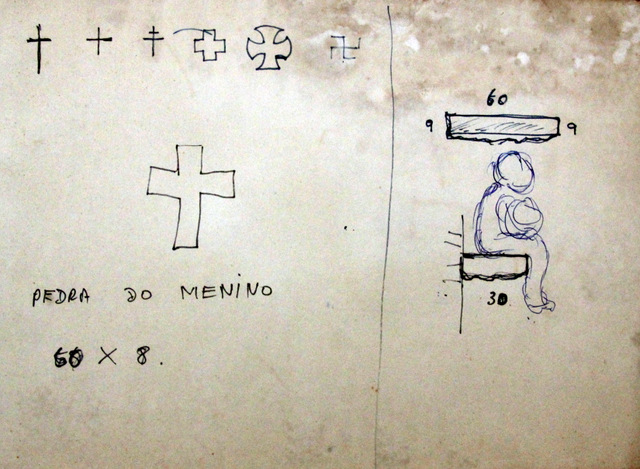 PEDRA DO MENINO
60 X 8.
60
9 9
30